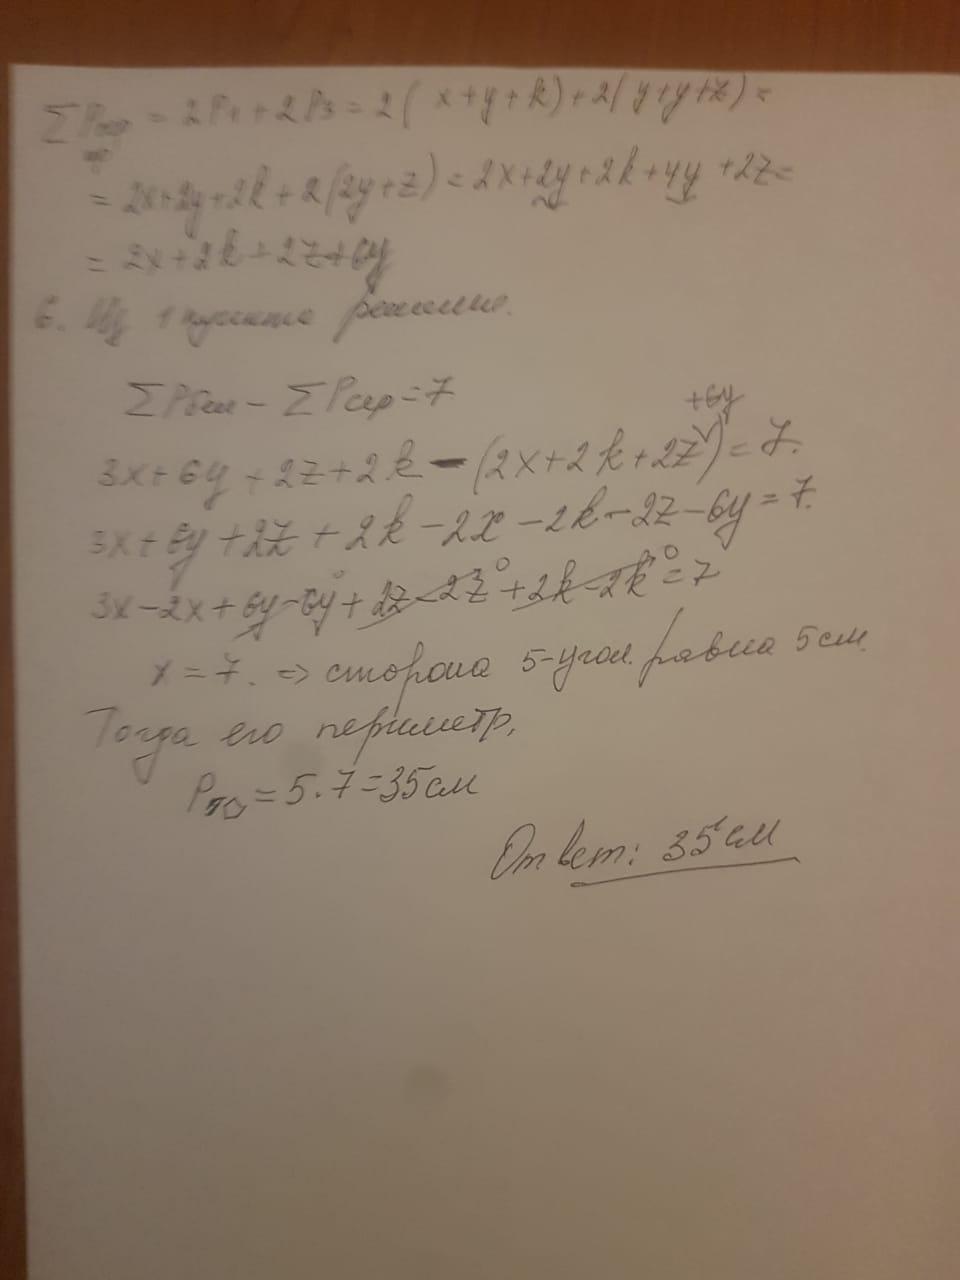 ∑Pсер = 2P1 + 2P3 = 2( x+y+k)+2(y+y+z) =
= 2x+2y+2k+2(2y+z) = 2x+2y+2k+4y+2z=
= 2x+2k+2z+6y
6. Из 1 пункта решение.
∑Pбел - ∑Pсер=7
+6y
3x+6y+2z+2k-(2x+2k+2z)=7.
3x+6y+2z+2k-2x-2k-2z-6y=7.
3x-2x+6y-6y⁰+2z-2z⁰+2k-2k⁰=7
x=7. => сторона 5-угол. равна 5 см.
Тогда его периметр,
P = 5.7=35см
Ответ: 35см